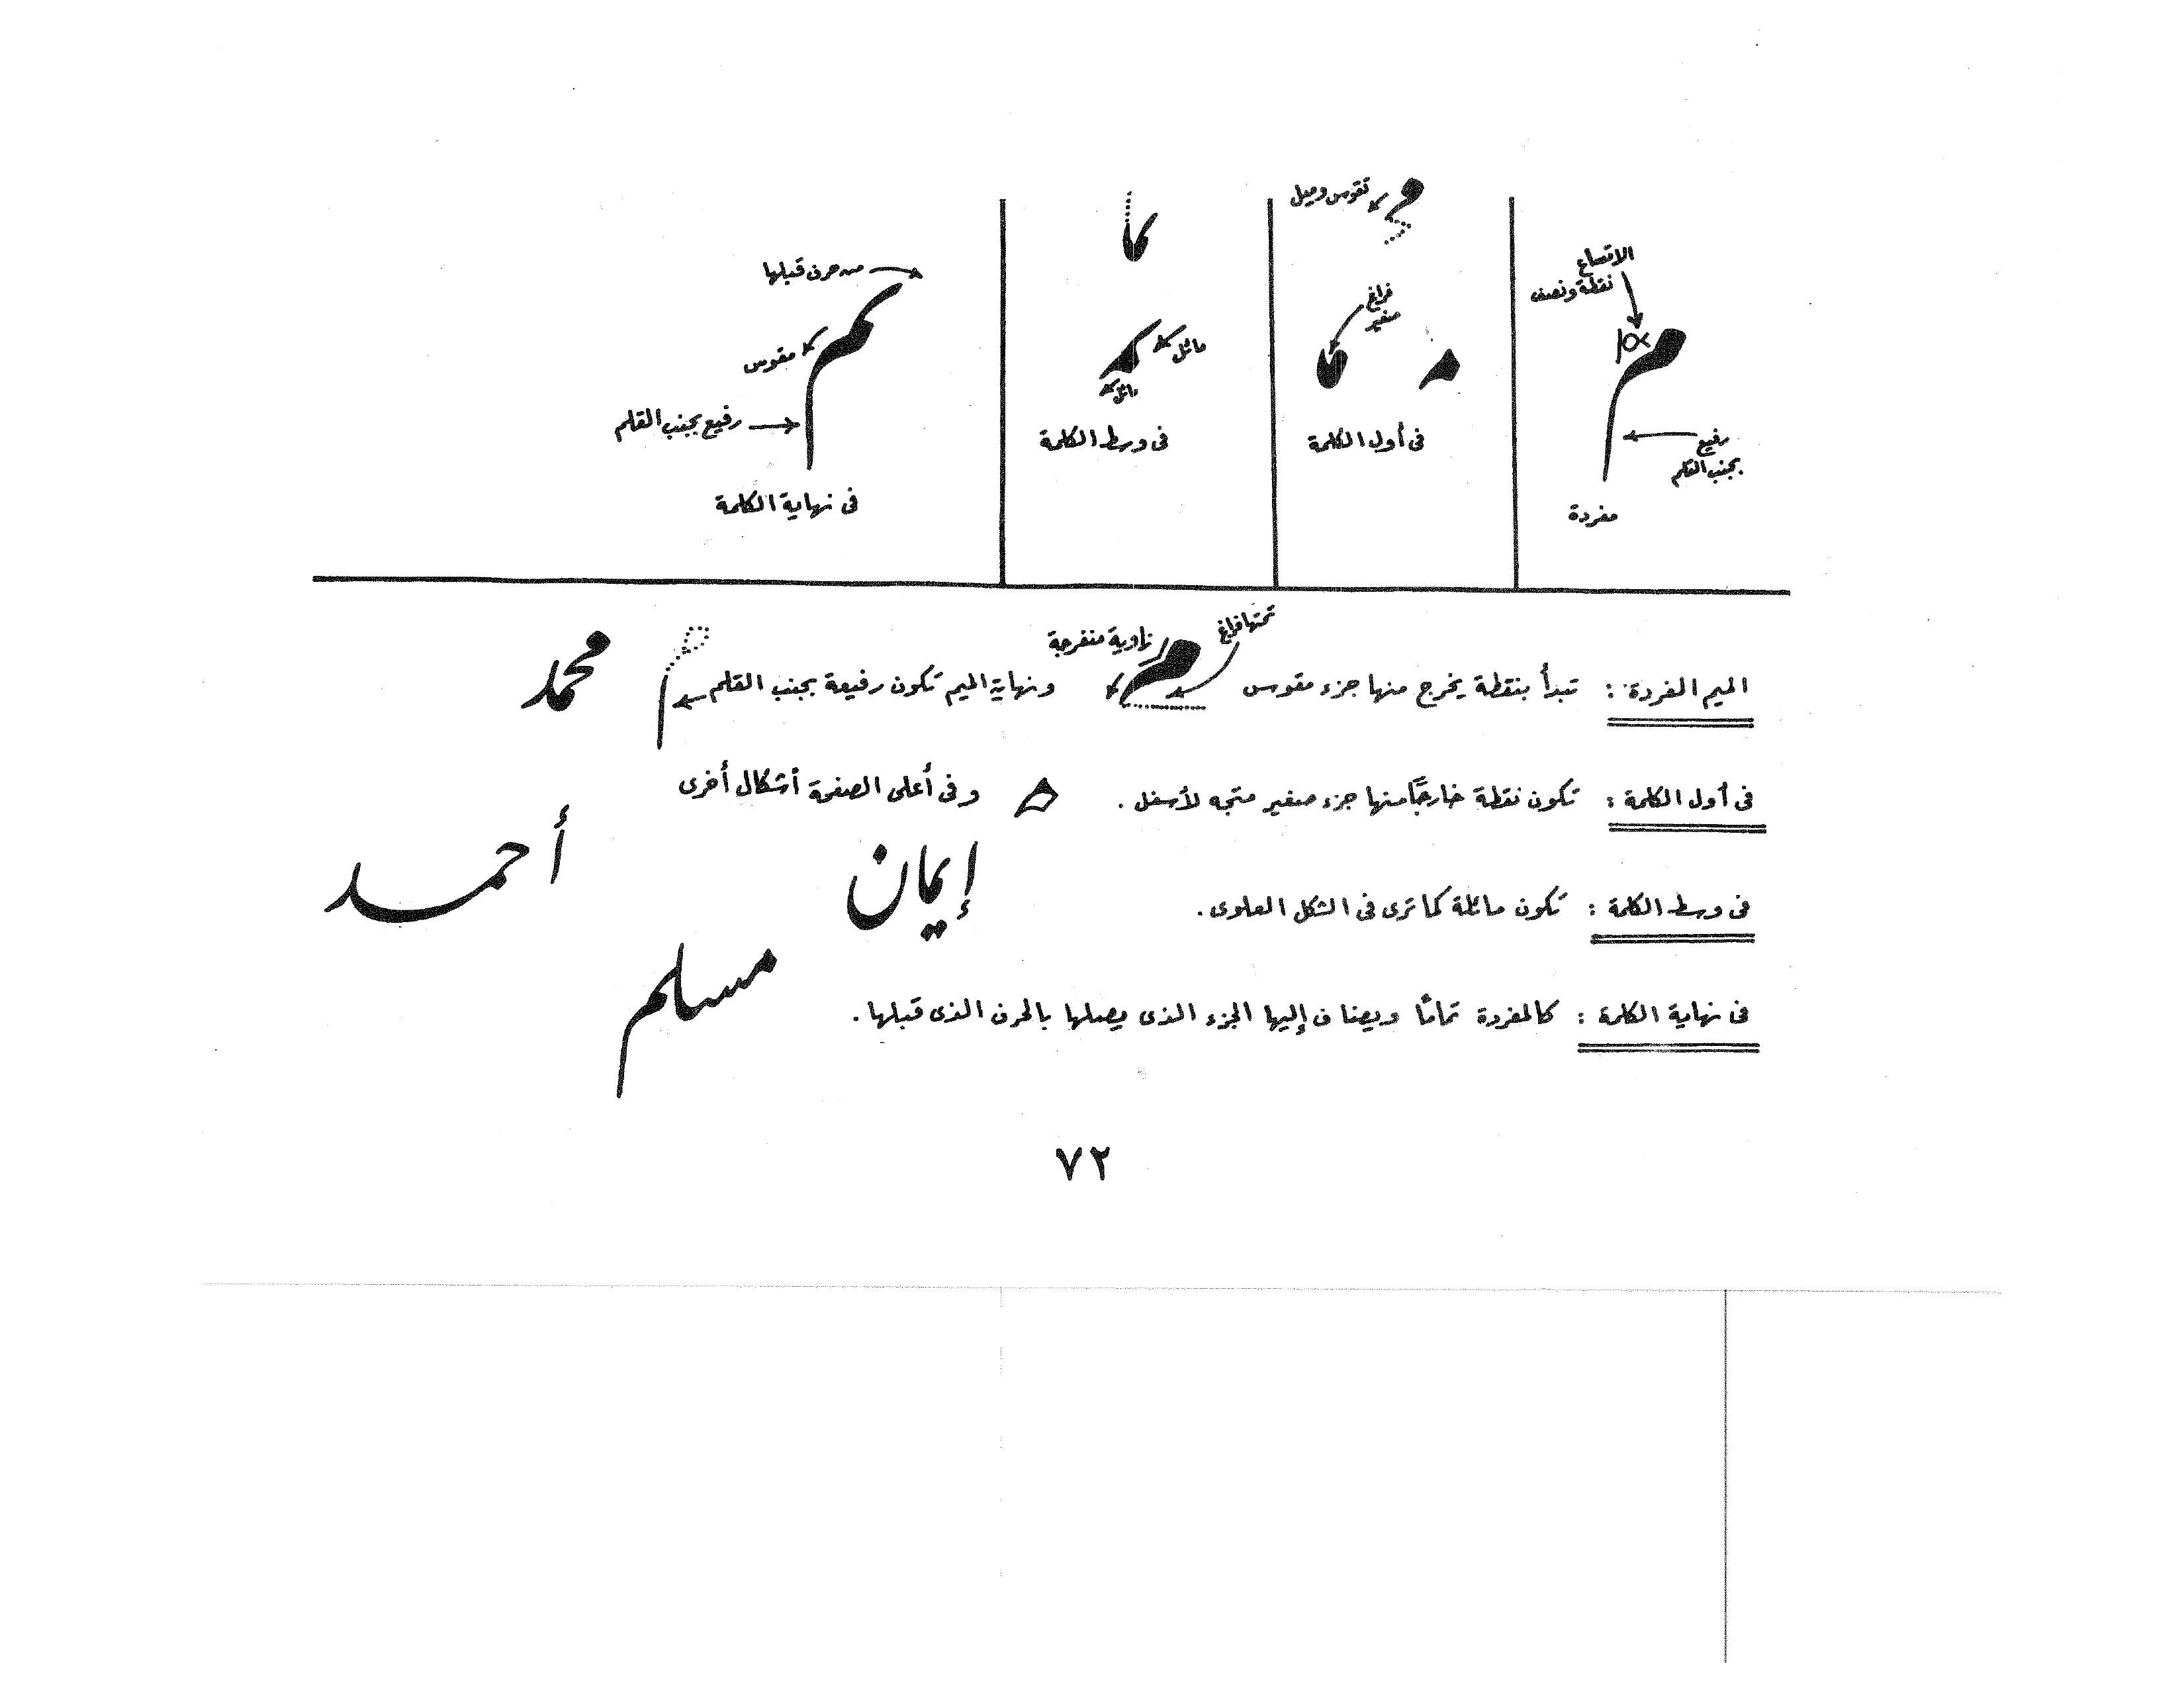 الاتساع
نقطة ونصف
م
رفيع
بجنب القلم
مفردة
تقوس وميل
فراغ
صغير
فى أول الكلمة
مائل
مائل
فى وسط الكلمة
من حرف قبلها
مقوس
رفيع بجنب القلم
فى نهاية الكلمة
تحتها فراغ
زاوية منفرجة
الميم المفردة : تبدأ بنقطة يخرج منها جزء مقوس م ونهاية الميم تكون رفيعة بجنب القلم محمد
فى أول الكلمة : تكون نقطة خارجًا منها جزء صغير متجه لأسفل . وفى أعلى الصفحة أشكال أخرى
فى وسط الكلمة : تكون مائلة كما ترى فى الشكل العلوى . إيمان أحمد
فى نهاية الكلمة : كالمفردة تمامًا ويضاف إليها الجزء الذى يصلها بالحرف الذى قبلها . مسلم
٧٢